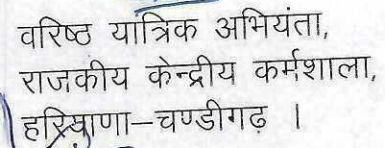 वरिष्ठ यात्रिक अभियंता,
राजकीय केन्द्रीय कर्मशाला,
हरियाणा–चण्डीगढ़ ।